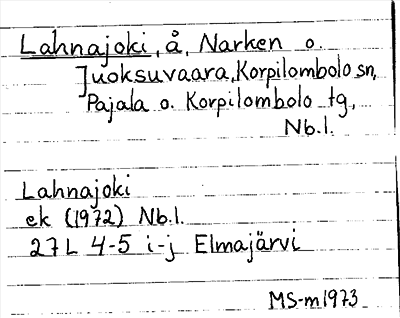 Lahnajoki, å, Narken o.
Juoksuvaara, Korpilombolo sn,
Pajala o. Korpilombolo tg,
Nb.l.
Lahnajoki
ek (1972) Nb.l.
27L 4-5 i-j Elmajärvi
MS-m 1973